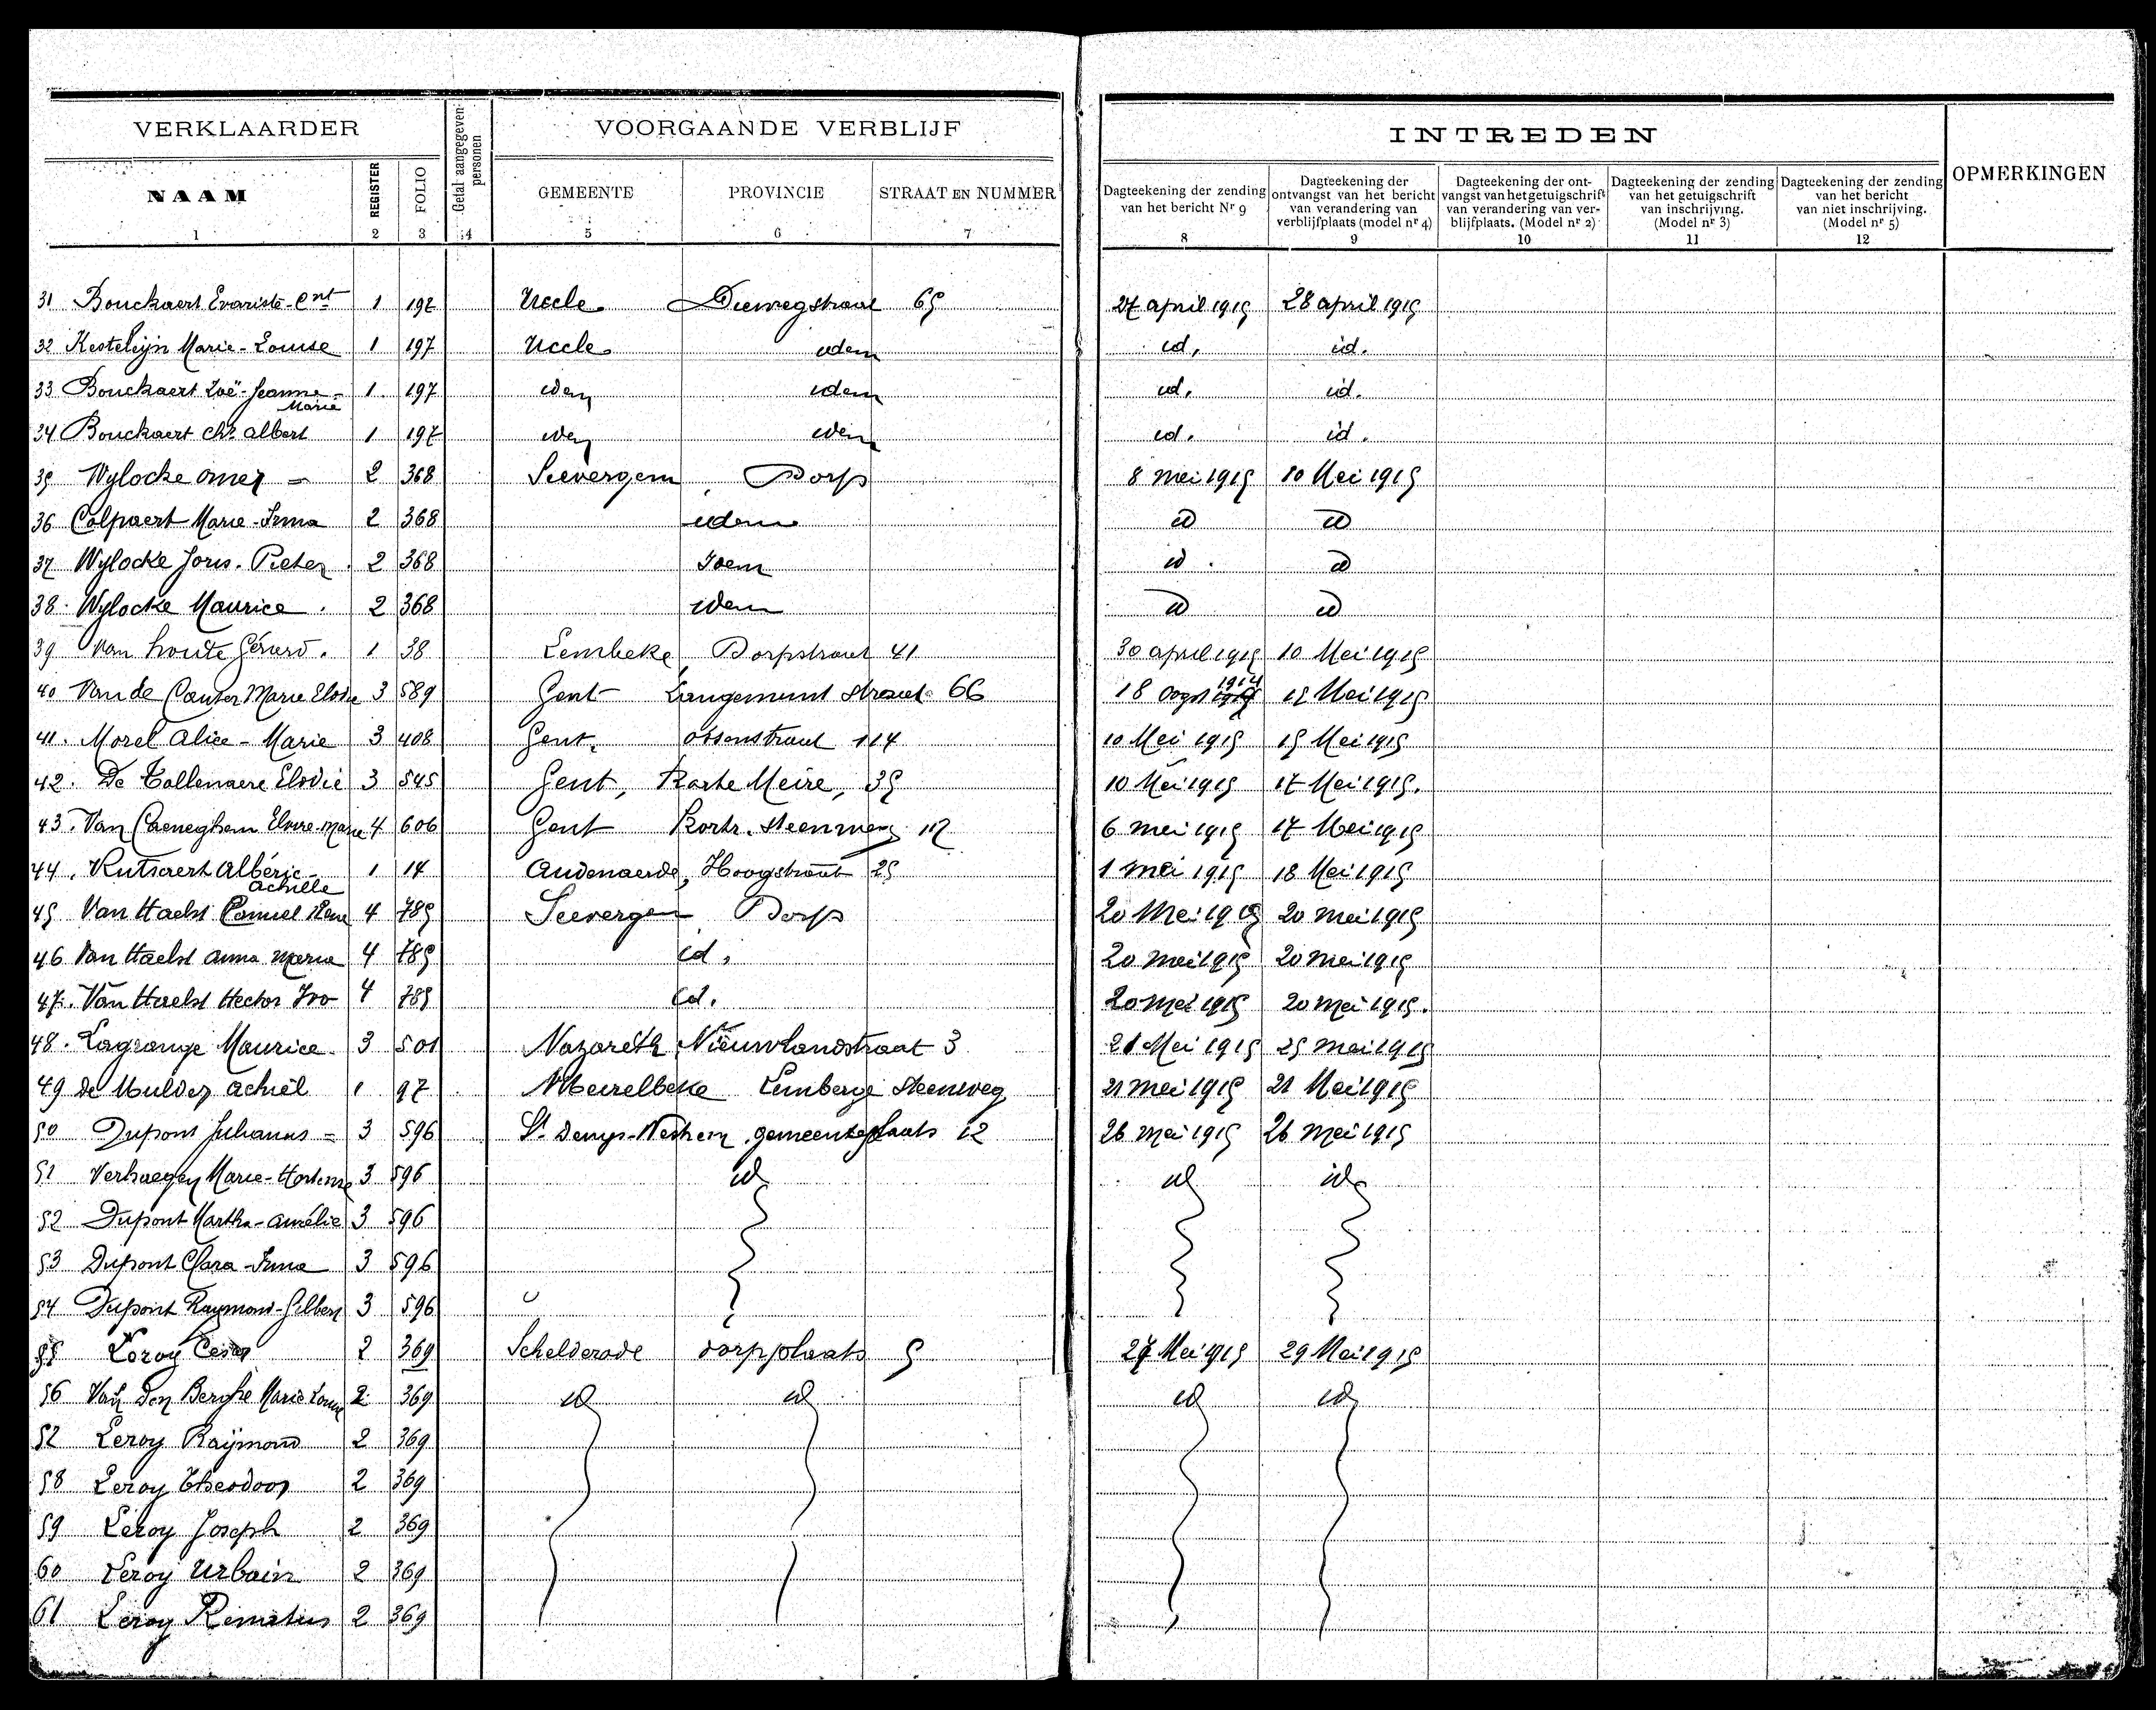 VERKLAARDER Getal aangegeven personen VOORGAANDE VERBLIJF INTREDEN OPMERKINGEN
NAAM REGISTER FOLIO GEMEENTE PROVINCIE STRAAT EN NUMMER
Dagteekening der zending van het bericht Nr 9
Dagteekening der ontvangst van het bericht van verandering van verblijfplaats (model nr 4)
Dagteekening der ontvangst van het getuigschrift van verandering van verblijfplaats. (Model nr 2)
Dagteekening der zending van het getuigschrift van inschrijving. (Model nr 3)
Dagteekening der zending van het bericht van niet inschrijving. (Model nr 5)
1 2 3 4 5 6 7 8 9 10 11 12
31 Bouckaert Evariste-Cnt 1 197 Uccle Diewegstraat 65 27 april 1915 28 april 1915
32 Kesteleijn Marie-Louise 1 197 Uccle idem id. id.
33 Bouckaert Zoë-Jeanne-Marie 1 197 idem idem id. id.
34 Bouckaert Chs albert 1 197 idem idem id. id.
35 Wylocke omer 2 368 Seevergem, Dorp 8 mei 1915 10 Mei 1915
36 Colpaert Marie-Irma 2 368 idem id id
37 Wylocke Joris. Pieter 2 368 Idem id. id
38. Wylocke Maurice. 2 368 idem id id
39 Van houte Gérard. 1 38 Lembeke, Dorpstraat 41 30 april 1915 10 Mei 1915
40 Van de Canter Marie Elodie 3 589 Gent Langemunt straat 66 18 oogst 1914 15 Mei 1915
41. Morel alice-Marie 3 408 Gent, ossenstraat 114 10 Mei 1915 15 Mei 1915
42. De Tollenaere Elodie 3 545 Gent, Korte Meire, 35 10 Mei 1915 17 Mei 1915.
43. Van Caeneghem Elvire-Marie 4 606 Gent Kortr. Steenweg 112 6 mei 1915 17 Mei 1915
44. Rutsaert Albéric-achille 1 14 Audenaerde, Hoogstraat 25 1 mei 1915 18 Mei 1915
45 Van Haelst Camiel Rene 4 785 Seevergem, Dorp 20 Mei 1915 20 mei 1915
46 Van Haelst anna maria 4 785 id. 20 mei 1915 20 mei 1915
47. Van Haelst Hector Ivo 4 785 id. 20 mei 1915 20 mei 1915.
48. Lagrange Maurice. 3 501 Nazareth, Nieuwlandstraat 3 21 Mei 1915 25 mei 1915
49 de Mulder achiel 1 97 Meirelbeke Lemberge Steenweg 21 mei 1915 21 Mei 1915
50 Dupont Julianus 3 596 St Denys-Westrem, gemeenteplaats 12 26 mei 1915 26 mei 1915
51 Verhaegen Marie-Hortense 3 596 id id id
52 Dupont Martha-amélie 3 596
53 Dupont Clara-Irma 3 596
54 Dupont Raymond-Gilbert 3 596
55 Leroy Cesar 2 369 Schelderode dorpplaats 5 27 Mei 1915 29 Mei 1915
56 Van den Berghe Marie Louise 2 369 id id id id
57 Leroy Raymond 2 369
58 Leroy Theodoor 2 369
59 Leroy Joseph 2 369
60 Leroy Urbain 2 369
61 Leroy Renatus 2 369